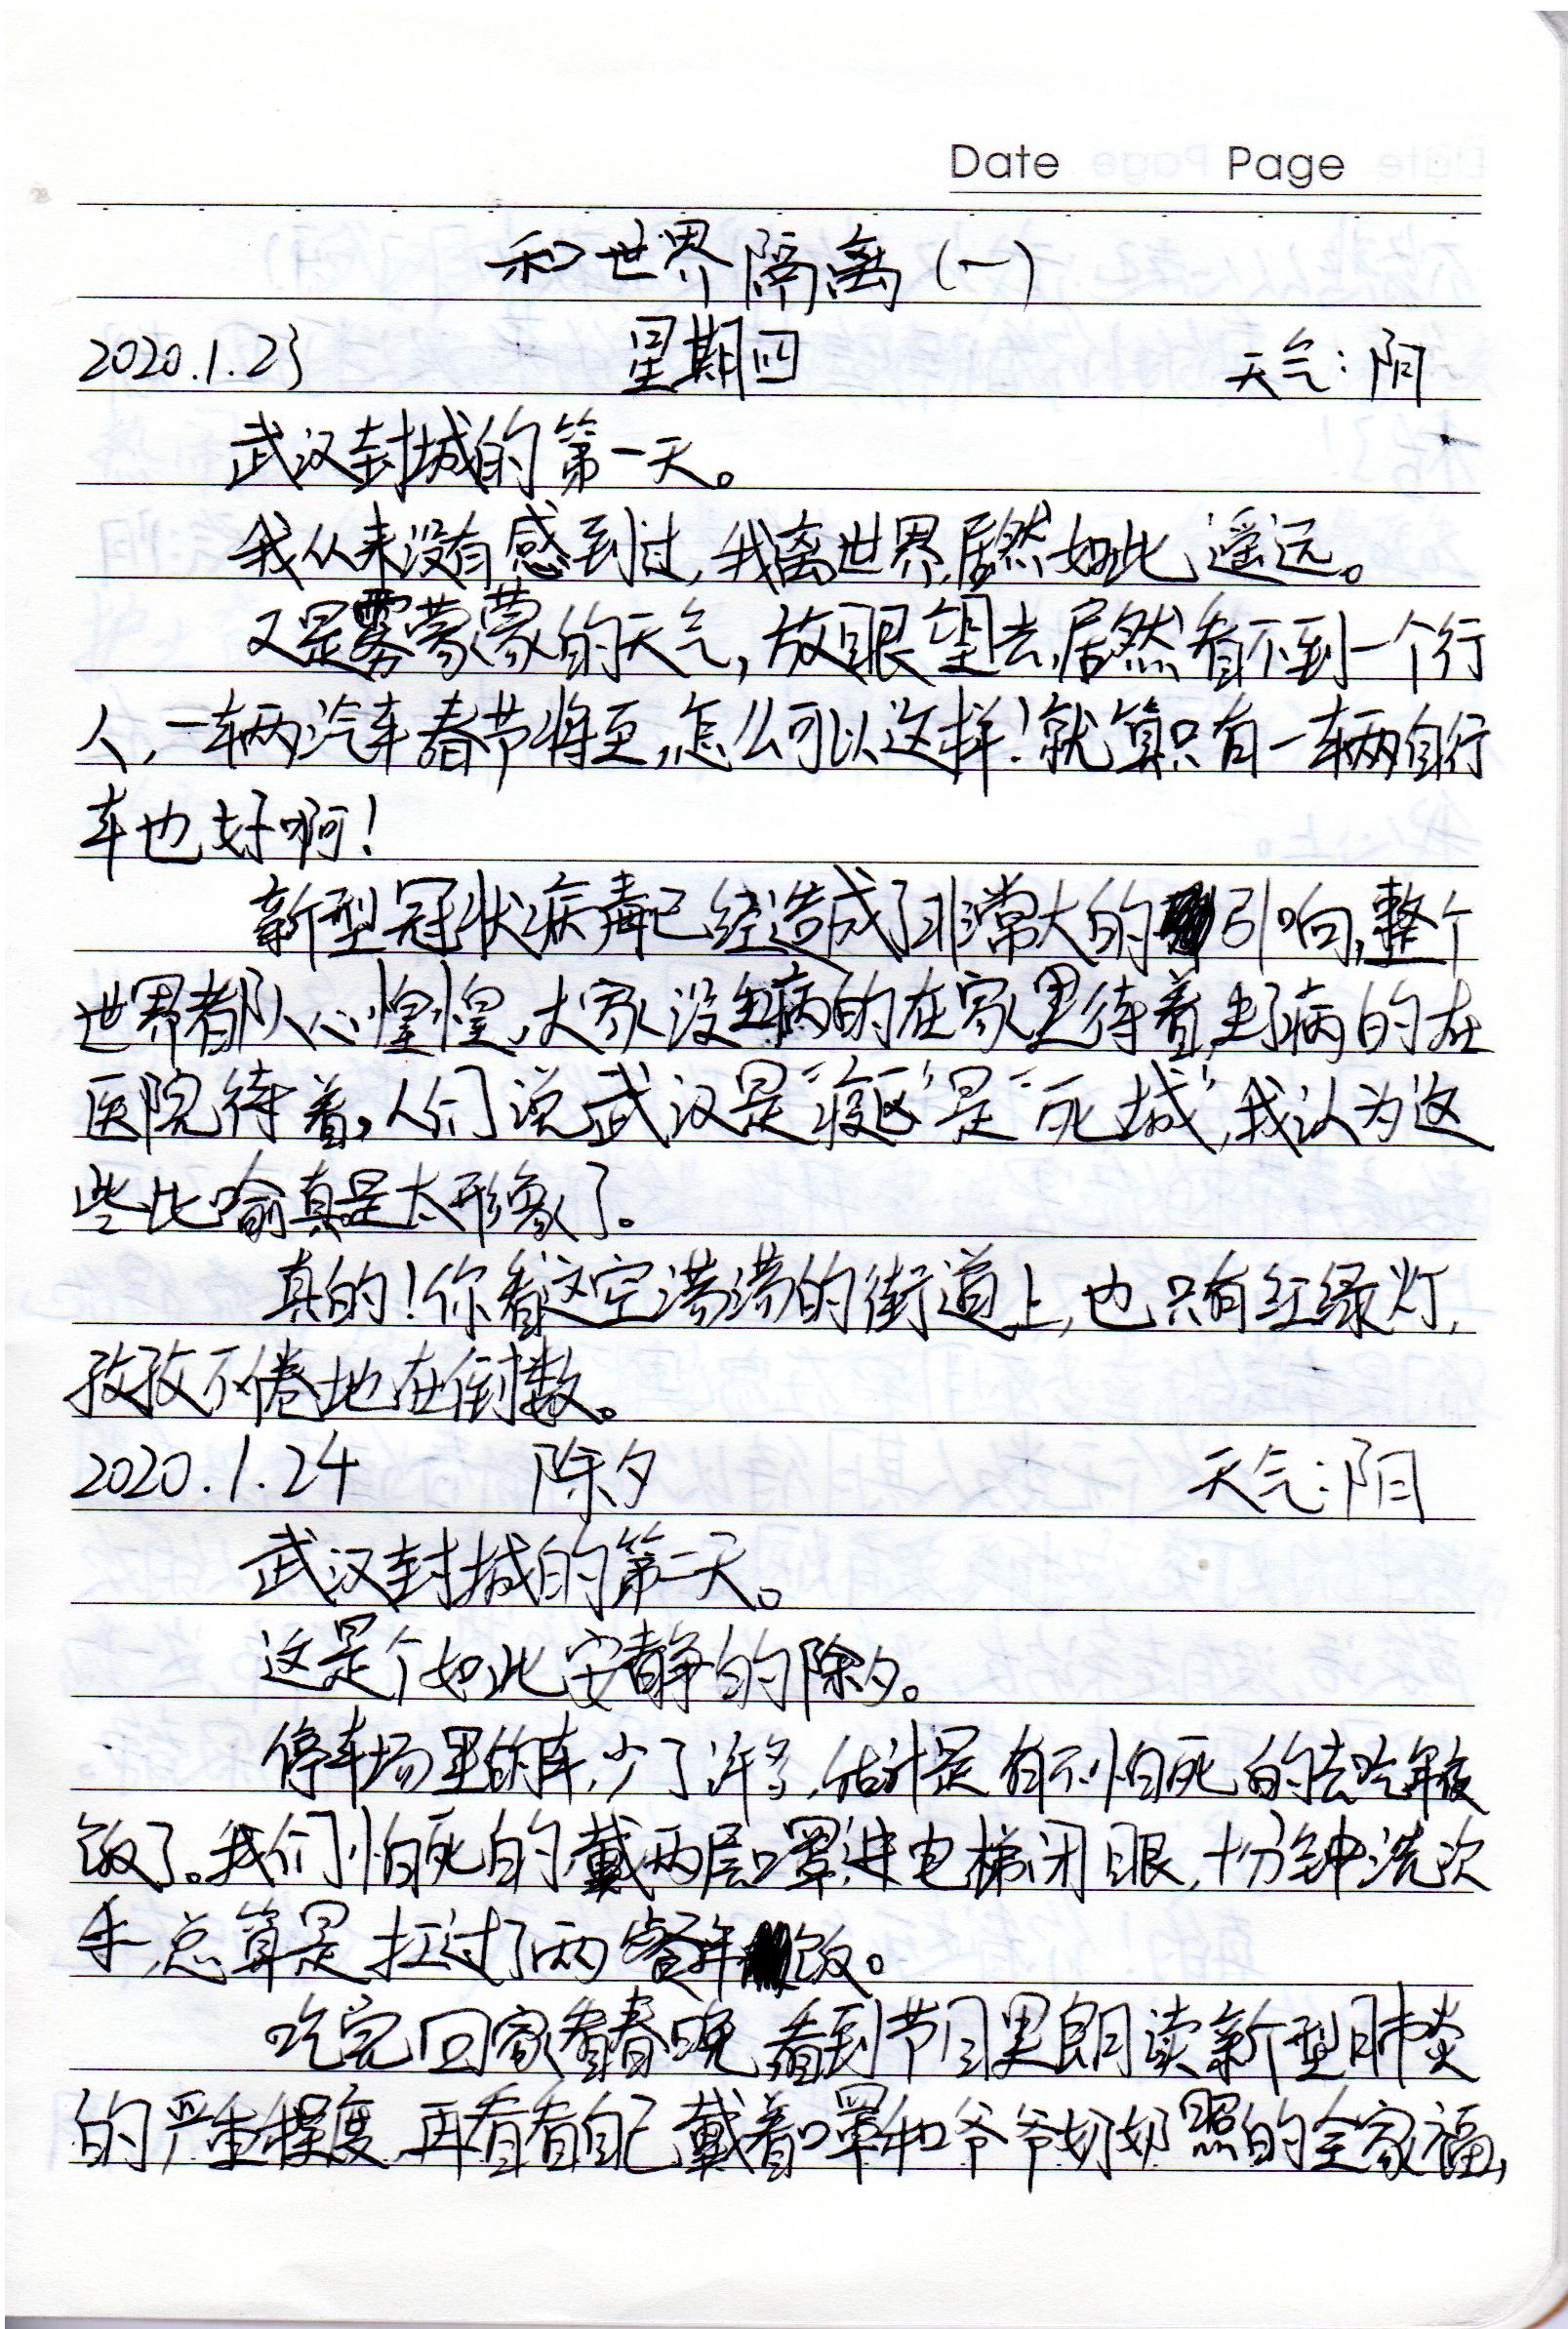 Date Page
和世界隔离(一)
2020.1.23 星期四 天气:阴
武汉封城的第一天。
我从来没有感到过,我离世界居然如此遥远。
又是雾蒙蒙的天气,放眼望去,居然看不到一个行
人,一辆汽车春节将至,怎么可以这样!就算只有一辆自行
车也好啊!
新型冠状病毒已经造成了非常大的引响,整个
世界都人心惶惶,大家没生病的在家里待着,生了病的在
医院待着,人们说武汉是“疫区”是“死城”,我认为这
些比喻真是太形象了。
真的!你看这空荡荡的街道上,也只有红绿灯,
孜孜不倦地在倒数。
2020.1.24 除夕 天气:阴
武汉封城的第二天。
这是个如此安静的除夕。
停车场里的车,少了许多,估计是有不怕死的去吃年夜
饭了。我们怕死的戴两层口罩,进电梯闭眼,十分钟洗次
手,总算是扛过了两餐年饭。
吃完回家看春晚,看到节目里朗读新型肺炎
的严重程度,再看看自己戴着口罩和爷爷奶奶照的全家福,